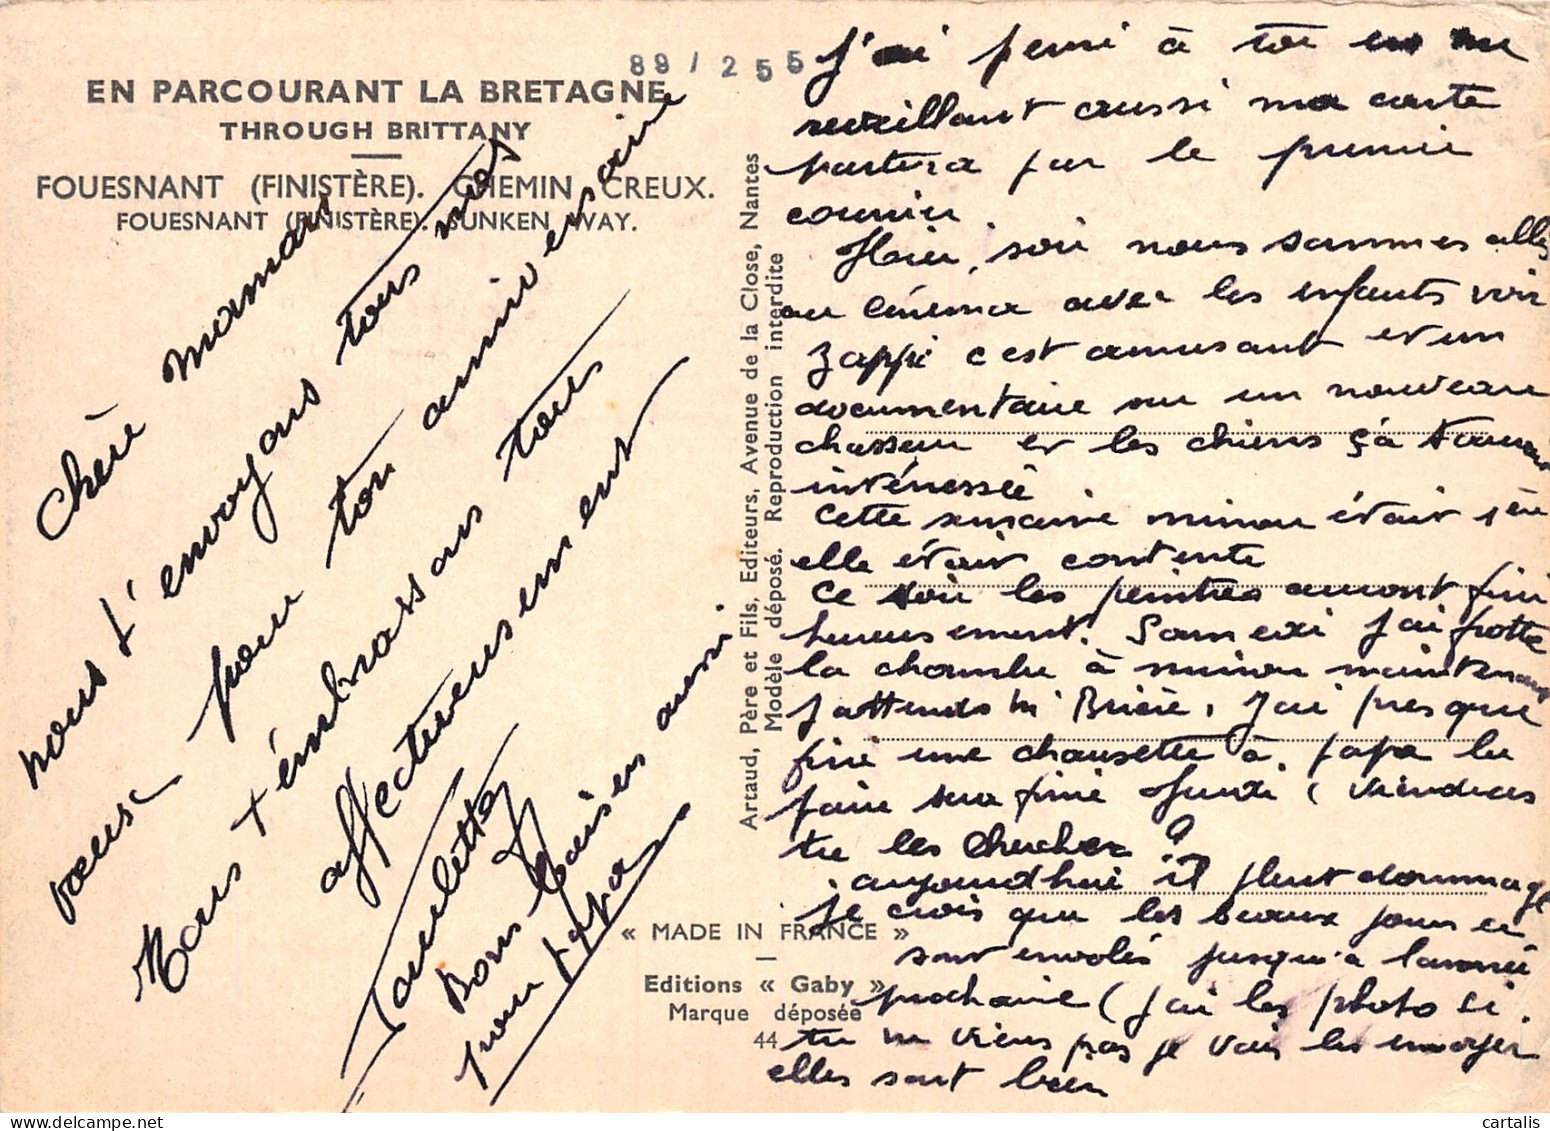 89 / 255
EN PARCOURANT LA BRETAGNE
THROUGH BRITTANY
FOUESNANT (FINISTÈRE). CHEMIN CREUX.
FOUESNANT (FINISTÈRE). SUNKEN WAY.
Chère maman
nous t'envoyons tous nos
voeux pour ton anniversaire
Nous t'embrassons tous
affectueusement
Paulette
Bons baisers aussi
pour papa
Artaud, Père et Fils, Editeurs, Avenue de la Close, Nantes
Modèle déposé. Reproduction interdite
« MADE IN FRANCE »
Editions « Gaby »
Marque déposée
44
J'ai pensé à toi en me
reveillant aussi ma carte
partira par le premier
courrier.
Hier, soir nous sommes allés
au cinéma avec les enfants voir
Zappi c'est amusant et un
documentaire sur un nouveau
chasseur et les chiens ça
intéressée
Cette semaine minou était
elle était contente
Ce soir les peintres auront fini
heureusement. Samedi j'ai frotté
la chambre à minou maintenant
j'attends Mr Brière, J'ai presque
fini une chaussette à papa la
paire sera finie Jeudi (viendras
tu les chercher ?
aujourd'hui il pleut dommage
je crois que les beaux jours se
sont envolés jusqu'à l'année
prochaine (j'ai les photo si
tu ne viens pas je vais les envoyer
elles sont bien